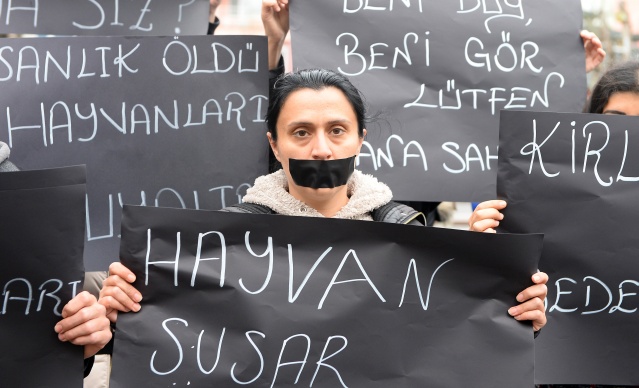 SİZ ?
SANLIK ÖLDÜ
HAYVANLARI
BENİ DUY,
BENİ GÖR
LÜTFEN
ANA SAH
KİRL
ARI
EDE
HAYVAN
SUSAR